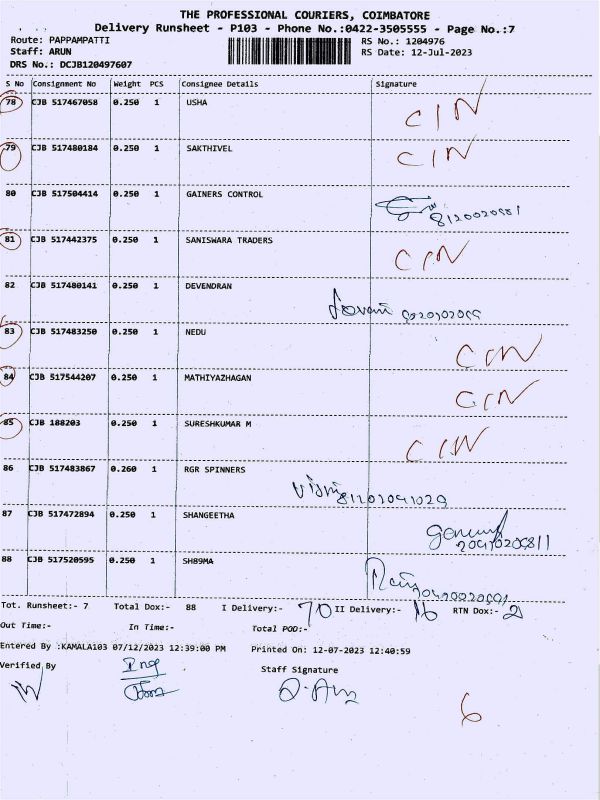 THE PROFESSIONAL COURIERS, COIMBATORE
Delivery Runsheet - P103 - Phone No.:0422-3505555 - Page No.:7
Route: PAPPAMPATTI
RS No.: 1204976
Staff: ARUN
RS Date: 12-Jul-2023
DRS No.: DCJB120497607
S No Consignment No Weight PCS Consignee Details Signature
78 CJB 517467058 0.250 1 USHA CIN
79 CJB 517480184 0.250 1 SAKTHIVEL CIN
80 CJB 517504414 0.250 1 GAINERS CONTROL
81 CJB 517442375 0.250 1 SANISWARA TRADERS CIN
82 CJB 517480141 0.250 1 DEVENDRAN
83 CJB 517483250 0.250 1 NEDU CIN
84 CJB 517544207 0.250 1 MATHIYAZHAGAN CIN
85 CJB 188203 0.250 1 SURESHKUMAR M CIN
86 CJB 517483867 0.260 1 RGR SPINNERS
87 CJB 517472894 0.250 1 SHANGEETHA
88 CJB 517520595 0.250 1 SH89MA
Tot. Runsheet:- 7 Total Dox:- 88 I Delivery:- 70 II Delivery:- 16 RTN Dox:- 2
Out Time:- In Time:- Total POD:-
Entered By :KAMALA103 07/12/2023 12:39:00 PM Printed On: 12-07-2023 12:40:59
Verified By Staff Signature
6